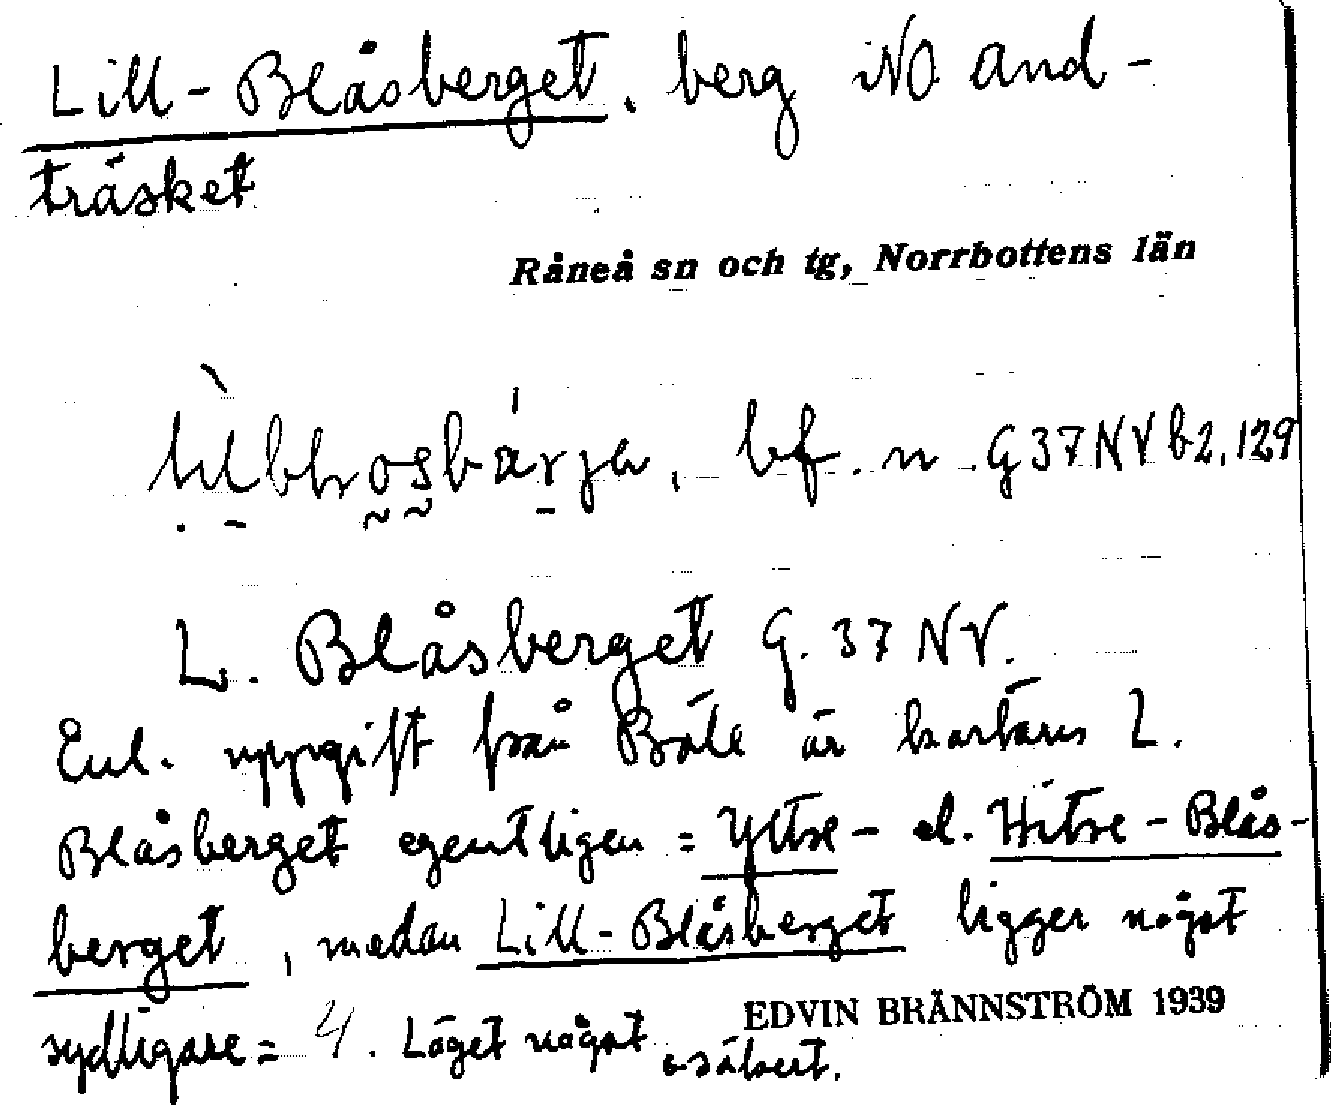 Lill-Blåsberget, berg i NO And-
träsket
Råneå sn och tg, Norrbottens län
bf. n G37NV b2, 129
L. Blåsberget G. 37 NV.
Enl. uppgift från Böle är kartans L.
Blåsberget egentligen = Yttre- el. Hitre-Blås-
berget, medan Lill-Blåsberget ligger något
sydligare = 4. Läget något
osäkert.
EDVIN BRÄNNSTRÖM 1939